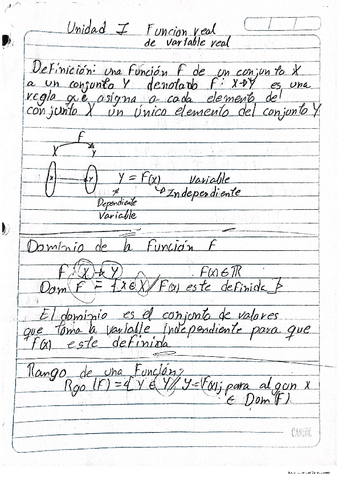 Unidad I Funcion real
de variable real
Definición: una Función F de un conjunto X
a un conjunto Y denotado F: X→Y es una
regla que asigna a cada elemento del
conjunto X un único elemento del conjunto Y
F
X Y
x y Y = F(x) Variable
Independiente
Dependiente
Variable
Dominio de la Función F
F: X→Y F(x)∈ℝ
Dom F = {x∈X / F(x) este definida}
El dominio es el conjunto de valores
que toma la variable independiente para que
F(x) este definida
Rango de una Función:
Rgo (F)={Y ∈ Y // Y=F(x); para algun x
∈ Dom(F)
CARIBE